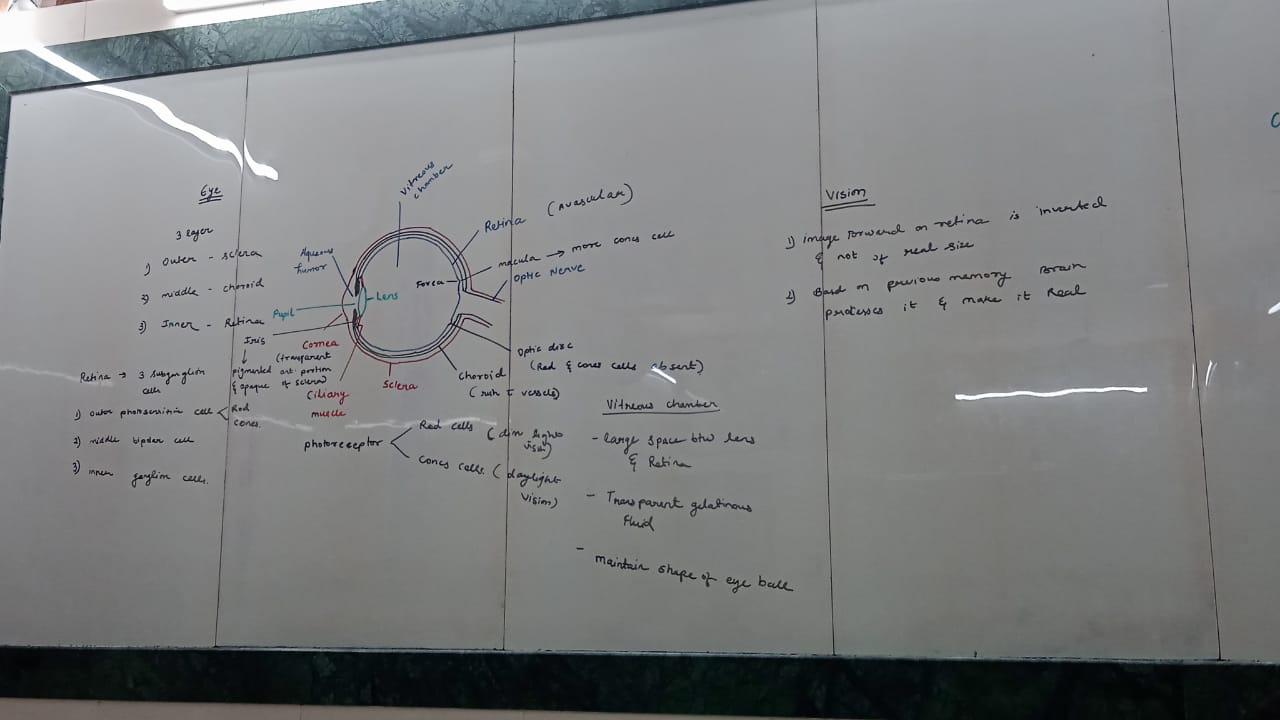 Eye
3 layer
1) outer - sclera
2) middle - choroid
3) Inner - Retina
Retina → 3 subganglion
cells
1) outer photosensitive cell < Rod
cones.
2) middle bipolar cell
3) inner ganglion cells.
Vitreous
chamber
Aqueous
humor
Pupil
Lens
Iris
↓
pigmented
& opaque
Cornea
(transparent
ant. portion
of sclera)
Ciliary
muscle
Sclera
Retina (Avascular)
macula → more cones cell
Fovea
Optic Nerve
Optic disc
(Rod & cones cells absent)
choroid
(rich vessels)
photoreceptor
Rod cells (dim light
vision)
Cones cells. (daylight
vision)
Vitreous chamber
- large space btw lens
& Retina
- Transparent gelatinous
fluid
- maintain shape of eye ball
Vision
1) image forward on retina is inverted
& not of real size
2) Basd on previous memory Brain
processes it & make it Real